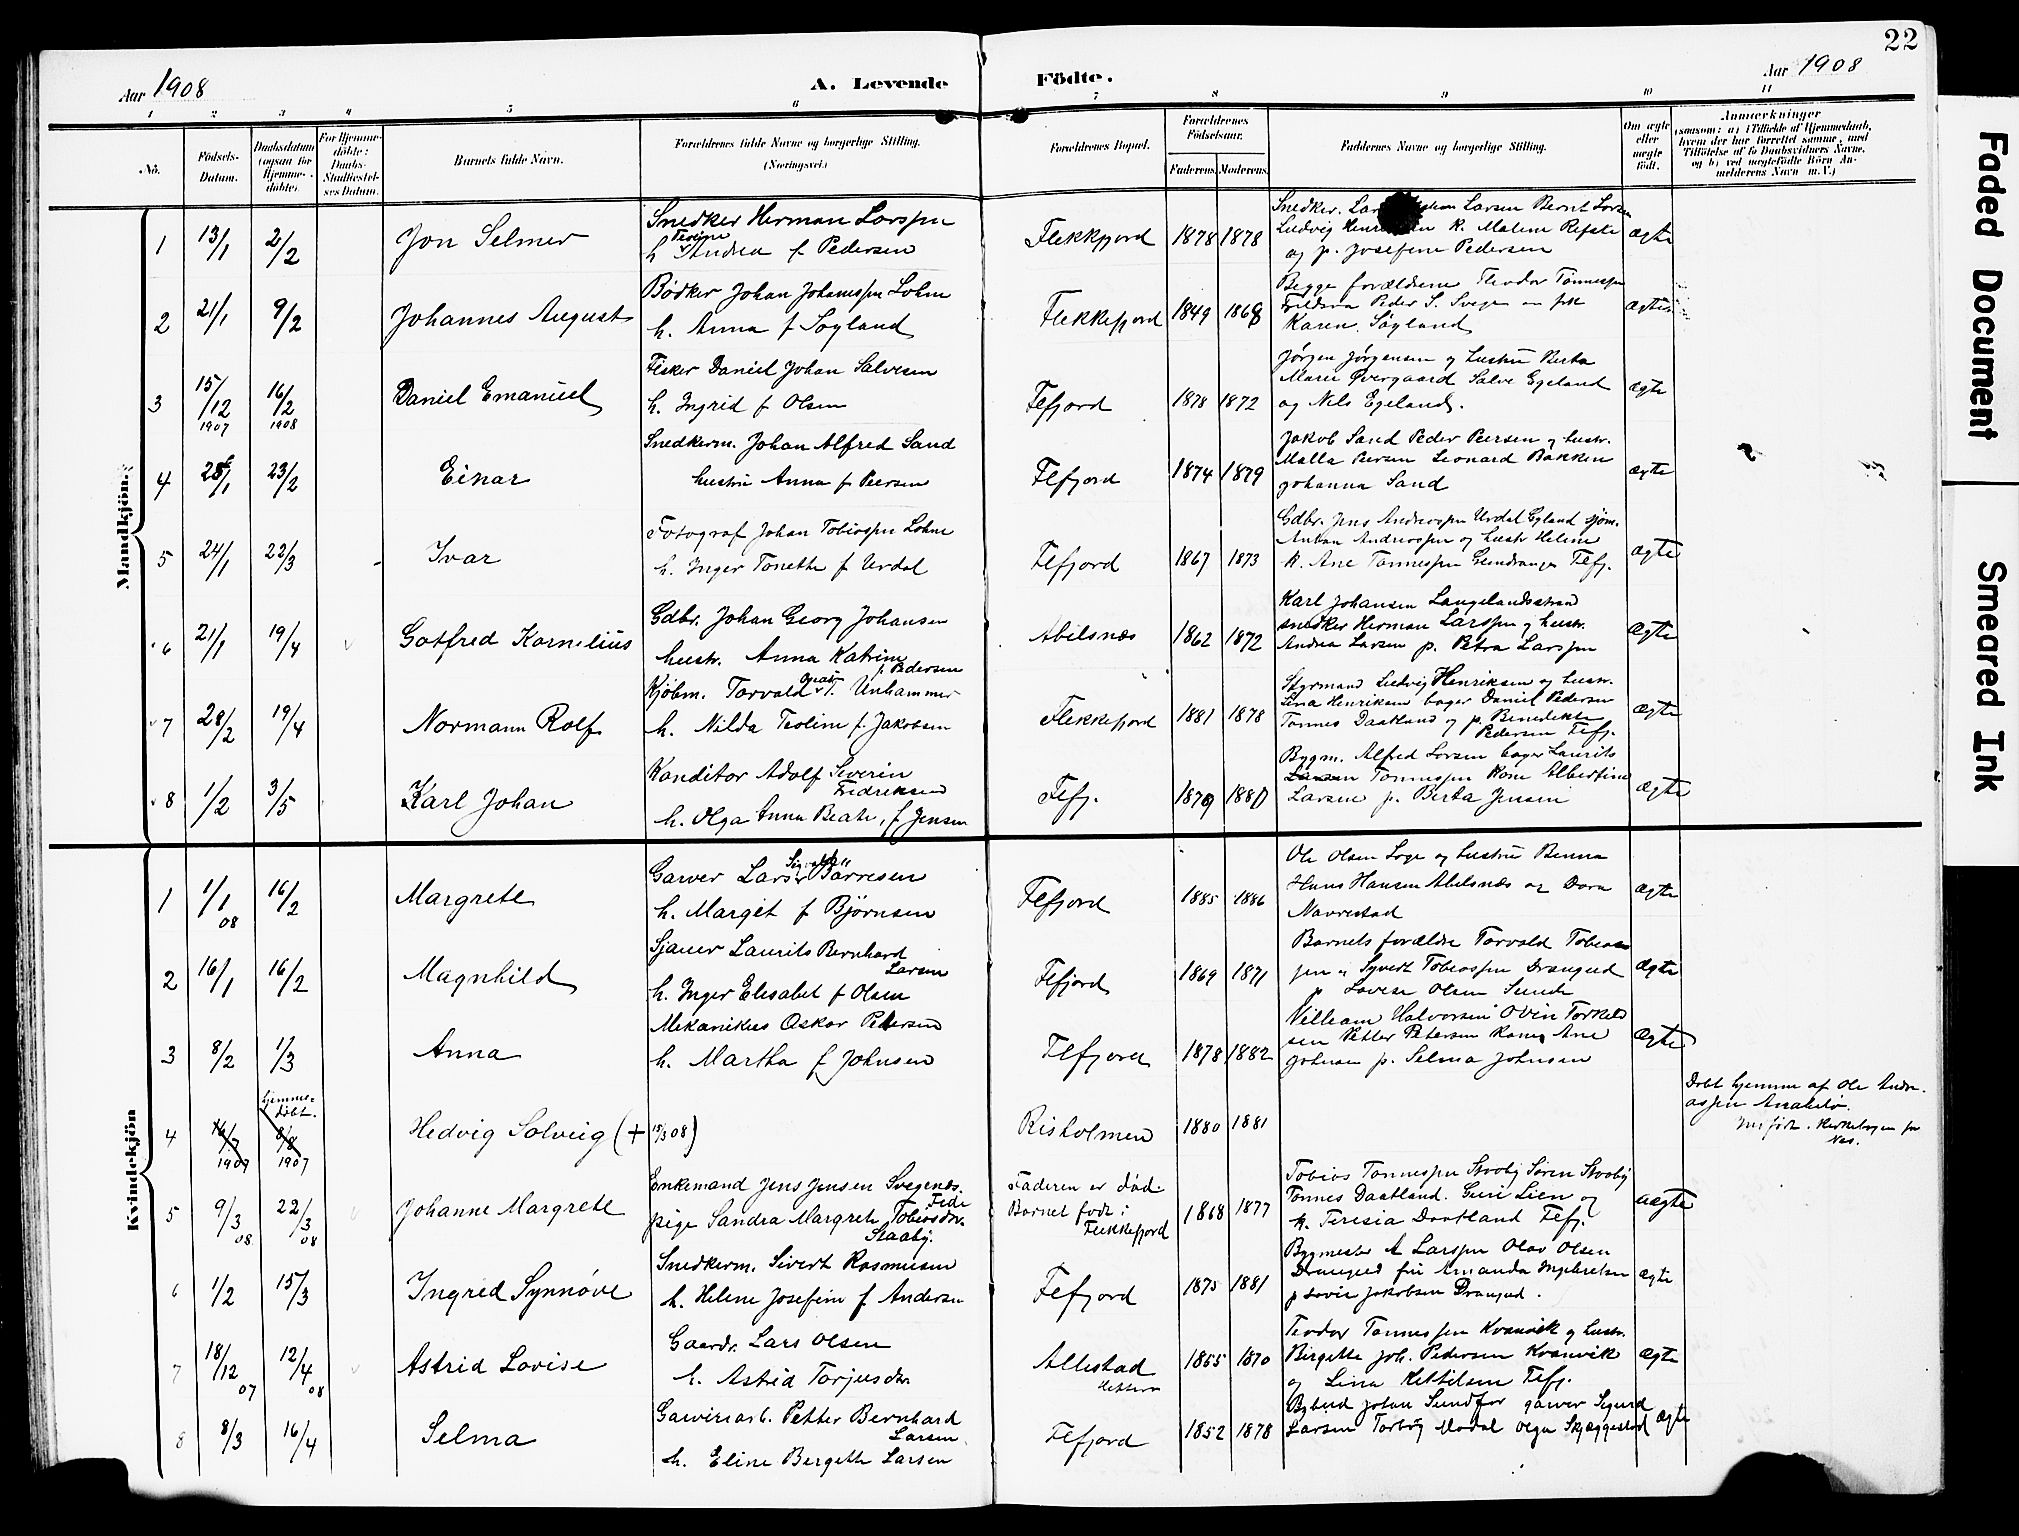 22
Aar 1908
A. Levende Födte.
Aar 1908
1 2 3 4 5 6 7 8 9 10 11
No.
Födsels-Datum.
Daabsdatum (ogsaa for Hjemme-döbte).
For Hjemme-döbte: Daabs-Stadfæstelses Datum.
Barnets fulde Navn.
Forældrenes fulde Navne og borgerlige Stilling. (Næringsvei.)
Forældrenes Bopæl.
Forældrenes Födselsaar.
Faderens. Moderens.
Faddernes Navne og borgerlige Stilling.
Om ægte eller uægte födt.
Anmærkninger
(saasom: a) i Tilfælde af Hjemmedaab, hvem der har forrettet samme, med Tilföielse af to Daabsvidners Navne, og b) ved uægtefödte Börn Anmelderens Navn m. V.)
Mandkjön.
1 13/1 2/2 Jon Selmer
Snedker Herman Larssen
Teoline
h Andrea f Pedersen
Flekkefjord 1878 1878
Snedker Larsen Bernt Larsen
Ludvig Henriksen k. Malene Refste
og p. Josefine Pedersen
ægte
2 21/1 9/2 Johannes August
Bödker Johan Johanessen Lohne
h. Anna f Söyland
Flekkefjord 1849 1868
Begge forældrene Theodor Tönnessen
Peder S. Svege
Karen Söyland
ægte
3 15/12 1907 16/2 1908 Daniel Emanuel
Fisker Daniel Johan Salvesen
h. Ingrid f Olsen
Flfjord 1878 1872
Jørgen Jørgensen og hustru Berta
Marie Övergaard Salve Egeland
og Nels Egeland.
ægte
4 25/1 23/2 Einar
Snedkerm. Johan Alfred Sand
hustru Anna f Peersen
Flfjord 1874 1879
Jakob Sand Peder Peersen og hustr.
Malla Peersen Leonard Bakken
Johanna Sand
ægte
5 24/1 22/3 Ivar
Fotograf Johan Tobiassen Lohne
h. Inger Tonette f Urdal
Flfjord 1867 1873
Gdbr. Jens Andreassen Urdal Egland sjöm.
Anton Andreassen og hustr Helene
k. Ane Tönnessen Flfj.
ægte
6 21/1 19/4 Gotfred Kornelius
Gdbr. Johan Georg Johansen
hustr. Anna Katrine
f. Pedersen
Abilsnæs 1862 1872
Karl Johansen Langelandsstrand
snedker Herman Larssen og hustr.
Andrea Larsen p. Petra Larssen
ægte
7 28/2 19/4 Normann Rolf
Kjöbm. Torvald T. Unhammer
h. Nilda Teoline f. Jakobsen
Flekkefjord 1881 1878
Styrmand Ludvig Henriksen og hustr.
Lina Henriksen bager Daniel Pedersen
Tönnes Daatland og p. Benedikte
Pedersen Flfj.
ægte
8 1/2 3/5 Karl Johan
Konditor Adolf Severin
Fredriksen
h. Olga Anna Beate, f Jensen
Flfj. 1879 1880
Bygm. Alfred Larsen bager Laurits
Larsen Tönnessen kone Albertine
Larsen p. Berta Jensen
ægte
Kvindekjön
1 1/1 08 16/2 Margrete
Garver Lars Sigvald Börresen
h. Margit f Björnsen
Flfjord 1885 1886
Ole Olsen Loge og hustru Benna
Hans Hansen Abelsnæs og Dora
Navrestad
ægte
2 16/1 16/2 Magnhild
Sjauer Laurits Bernhard
Larsen
h. Inger Elisabet f Olsen
Flfjord 1869 1871
Barnets forældre Torvald Tobias
sen Syvert Tobiassen Drangeid
p Lovise Olsen Sunde
ægte
3 8/2 1/3 Anna
Mekanikus Oskar Petersen
h. Martha f Johnsen
Flfjord 1878 1882
Villeam Halvorsen Odin Torkeld
sen Petter Petersen kone Ane
Johnsen p. Selma Johnsen
ægte
4 16/7 1907 hjemme-döbt. 8/8 1907 Hedvig Solveig (+ 18/3 08)
Risholmen 1880 1881
Döbt hjemme af Ole Andre-
assen Anabelö.
Indført i Kirkebogen for
Nes.
5 9/3 08 22/3 08 Johanne Margrete
Enkemand Jens Jensen Svegenes.
Fede
pige Sandra Margrete Tobiasdtr.
Staaby.
Faderen er död.
Barnet född i
Flekkefjord
1868 1877
Tobias Tönnessen Stooby Sören Stooby
Tönnes Daatland. Guri Lien og
k. Teresia Daatland Flfj.
uægte
6 1/2 15/3 Ingrid Synnöve
Snedkerm. Sivert Rasmusen
h. Helene Josefine f Andersen
Flfjord 1875 1881
Bygmester A Larssen Olav Olsen
Drangeid fru Amanda Ingebretsen
p Lovise Jakobsen Drangeid.
ægte
7 18/12 07 12/4 08 Astrid Lovise
Gaardr. Lars Olsen
h. Astrid Torjusdtr.
Allestad
1855 1870
Teodor Tönnessen Kvanvik og hustr.
Birgette Joh. Pedersen Kvanvik
og Lina Kettilsen Flfj.
ægte
8 8/3 16/4 Selma
Garveriarb. Petter Bernhard
Larsen
h. Eline Bergette Larsen
Flfjord 1852 1878
Bybud Johan Sundfør garver Sigurd
Larsen Torborg Modal Olga Skjæggestad
ægte
Faded Document
Smeared Ink